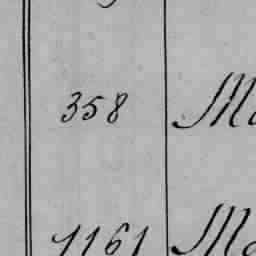 358 Ma
1161 Ma